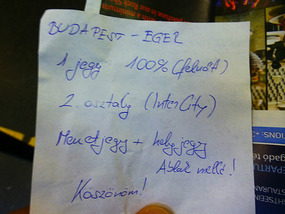 BUDAPEST - EGER
1 jegy 100% (felnőtt)
2. osztály (InterCity)
Menetjegy + helyjegy
Ablak mellé!
Köszönöm!